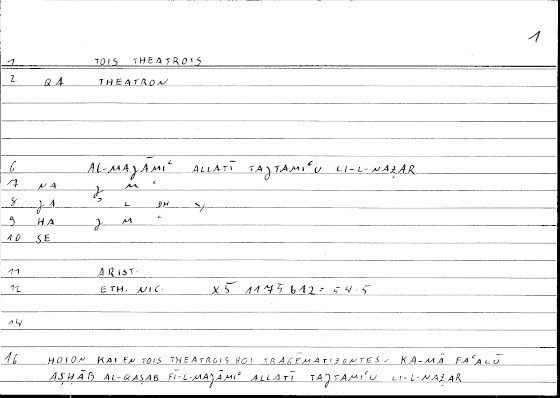 1
1 TOIS THEATROIS
2 QA THEATRON
6 AL-MAǦĀMIʿ ALLATĪ TAǦTAMIʿU LI-L-NAẒAR
7 NA Ǧ M ʿ
8 ǦA ʾ L DH Y
9 HA Ǧ M ʿ
10 SE
11 ARIST.
12 ETH. NIC. X5 1175 b12 = 54.5
14
16 HOION KAI EN TOIS THEATROIS HOI TRAGĒMATIZONTES - KA-MĀ FAʿALŪ
AṢḤĀB AL-QAṢAB FĪ-L-MAǦĀMIʿ ALLATĪ TAǦTAMIʿU LI-L-NAẒAR